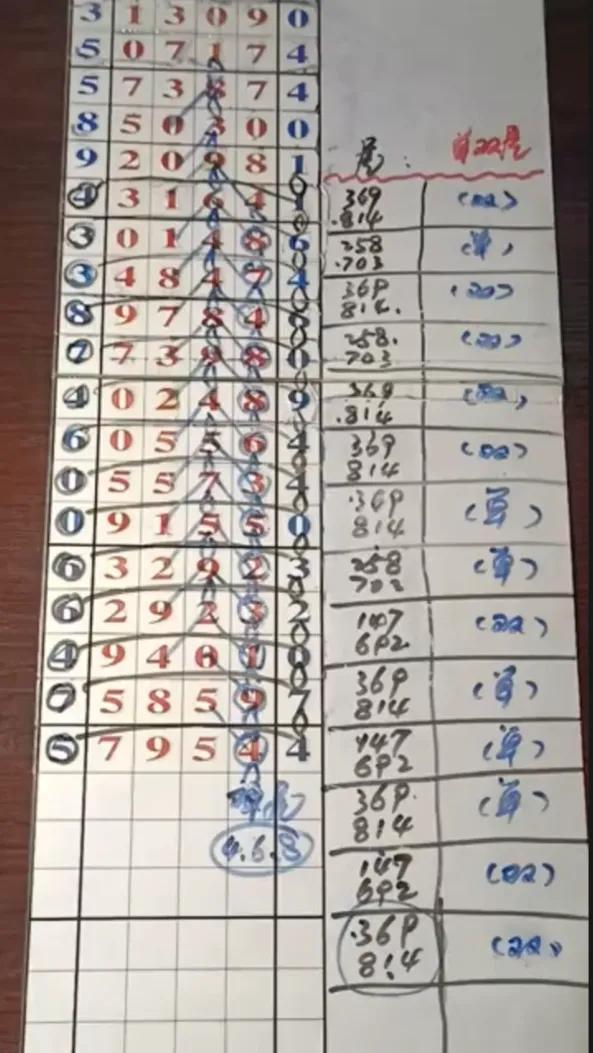 3 1 3 0 9 0
5 0 7 1 7 4
5 7 3 8 7 4
8 5 0 3 0 0
9 2 0 9 8 1
尾:
4 3 1 6 4 1
369
814
(双)
3 0 1 4 8 6
258
703
(单)
3 4 8 4 7 4
369
814
(双)
8 9 7 8 4 8
258
703
(双)
7 7 3 9 8 0
4 0 2 4 8 9
369
814
(双)
6 0 5 5 6 4
369
814
(双)
0 5 5 7 3 4
369
814
(单)
0 9 1 5 5 0
6 3 2 9 2 3
258
703
(单)
6 2 9 2 3 2
147
692
(双)
4 9 4 0 1 0
369
814
(单)
7 5 8 5 9 7
147
692
(单)
5 7 9 5 4 4
369
814
(单)
4.6.8
147
692
(双)
369
814
(双)